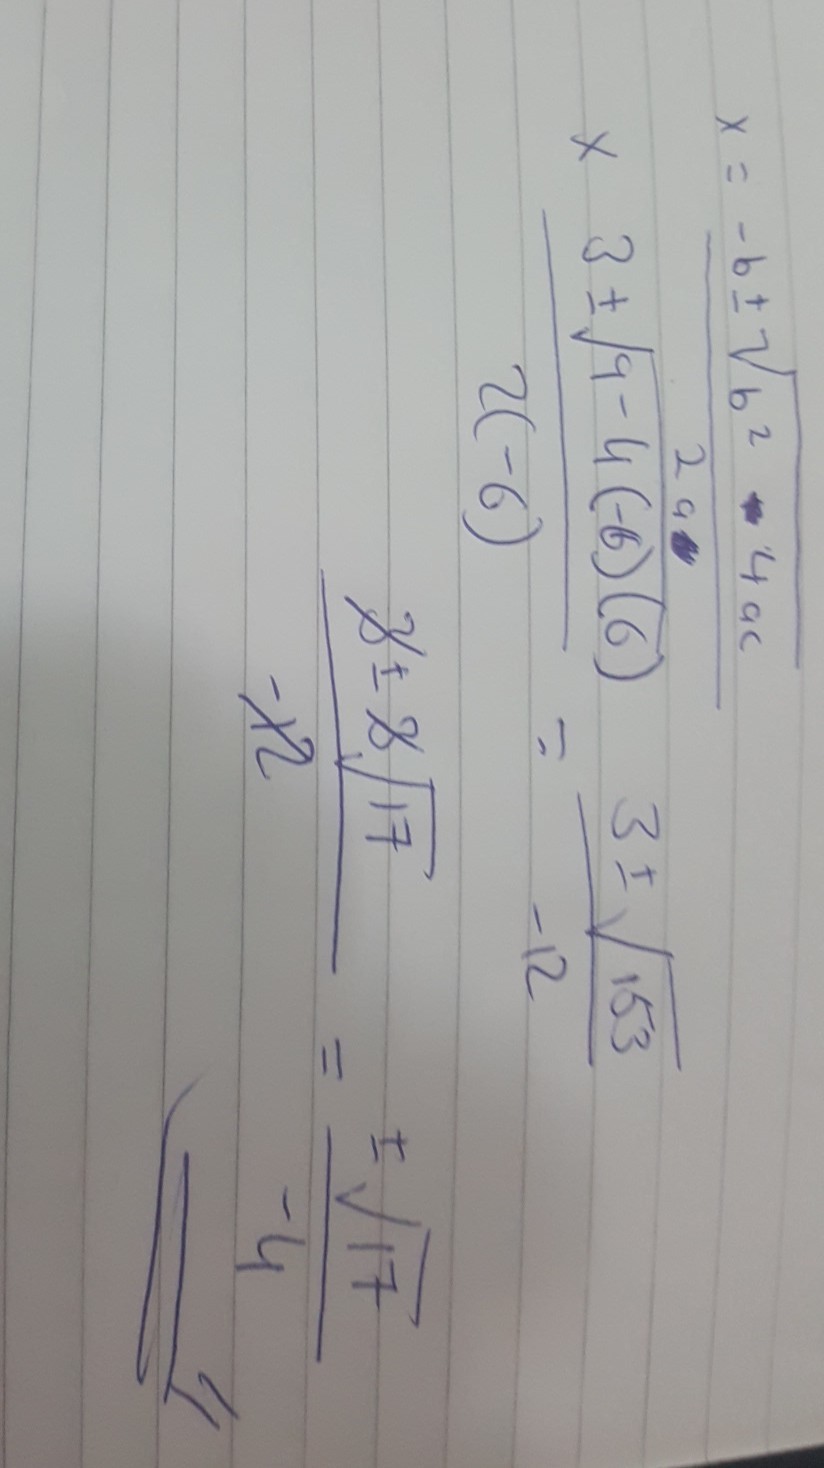 x = -b ± √b² - 4ac
2a
x 3 ± √9 - 4(-6)(6) = 3 ± √153
2(-6) -12
3 ± 3√17 = ± √17
-12 -4